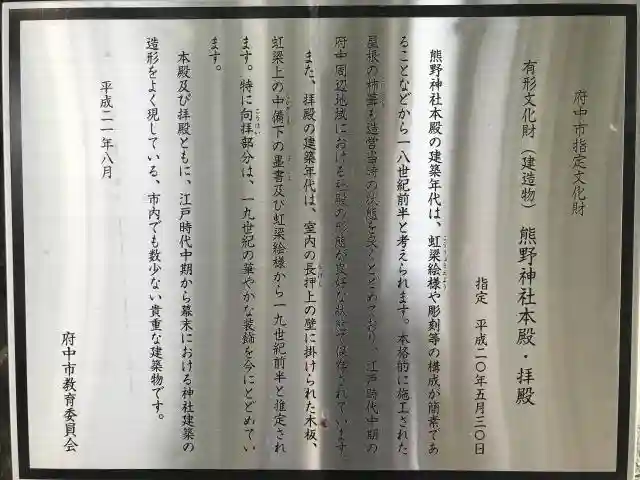 府中市指定文化財
有形文化財（建造物） 熊野神社本殿・拝殿
指定 平成二〇年五月三〇日
熊野神社本殿の建築年代は、虹梁絵様や彫刻等の構成が簡素であ
ることなどから一八世紀前半と考えられます。本格的に施工された
屋根の杮葺も造営当時の状態を良くとどめており、江戸時代中期の
府中周辺地域における社殿の形態が良好な状態で保存されています。
また、拝殿の建築年代は、室内の長押上の壁に掛けられた木板、
虹梁上の中備下の墨書及び虹梁絵様から一九世紀前半と推定され
ます。特に向拝部分は、一九世紀の華やかな装飾を今にとどめてい
ます。
本殿及び拝殿ともに、江戸時代中期から幕末における神社建築の
造形をよく現している、市内でも数少ない貴重な建築物です。
平成二一年八月
府中市教育委員会